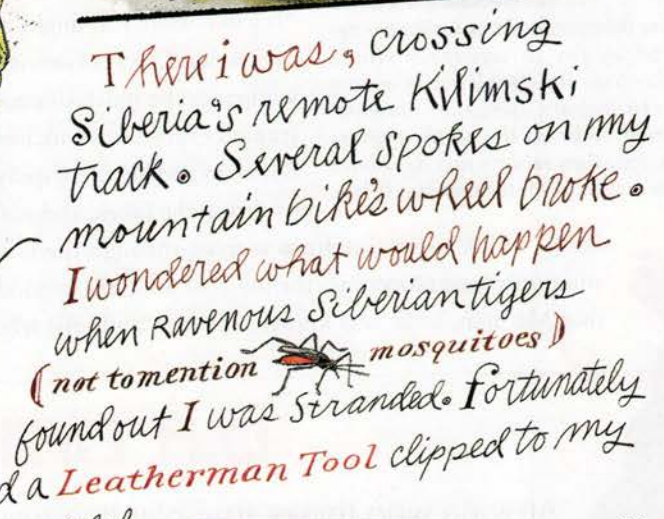 There i was, crossing
Siberia's remote Kilimski
track. Several spokes on my
mountain bike's wheel broke.
I wondered what would happen
when Ravenous Siberian tigers
(not to mention mosquitoes)
found out I was stranded. Fortunately
a Leatherman Tool clipped to my